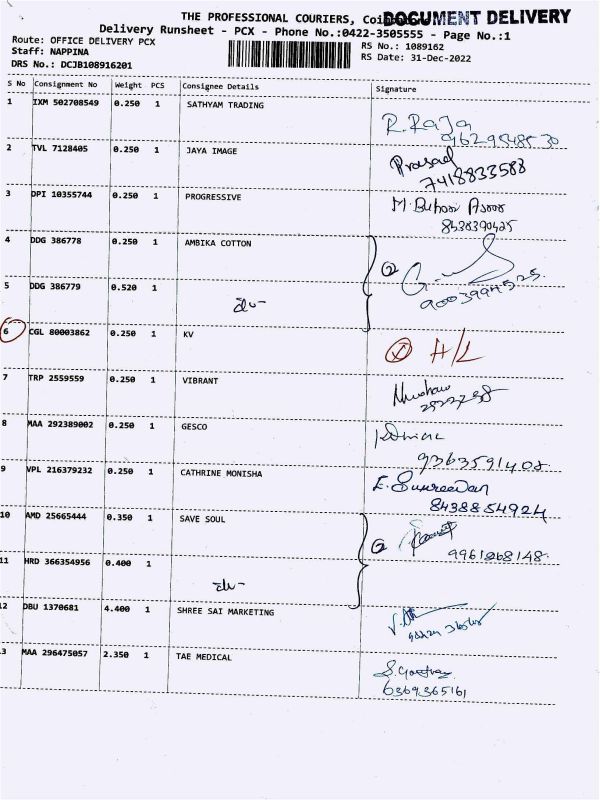 DOCUMENT DELIVERY
THE PROFESSIONAL COURIERS,
Delivery Runsheet - PCX - Phone No.:0422-3505555 - Page No.:1
Route: OFFICE DELIVERY PCX
RS No.: 1089162
Staff: NAPPINA
RS Date: 31-Dec-2022
DRS No.: DCJB108916201
S No Consignment No Weight PCS Consignee Details Signature
1 IXM 502708549 0.250 1 SATHYAM TRADING R.Raja
2 TVL 7128405 0.250 1 JAYA IMAGE Prasad
7418833588
3 DPI 10355744 0.250 1 PROGRESSIVE
8438390425
4 DDG 386778 0.250 1 AMBIKA COTTON 2
5 DDG 386779 0.520 1
6 CGL 80003862 0.250 1 KV H/L
7 TRP 2559559 0.250 1 VIBRANT
8 MAA 292389002 0.250 1 GESCO
9 VPL 216379232 0.250 1 CATHRINE MONISHA
8438854924
10 AMD 25665444 0.350 1 SAVE SOUL 2
11 HRD 366354956 0.400 1
12 DBU 1370681 4.400 1 SHREE SAI MARKETING
13 MAA 296475057 2.350 1 TAE MEDICAL
6369365161